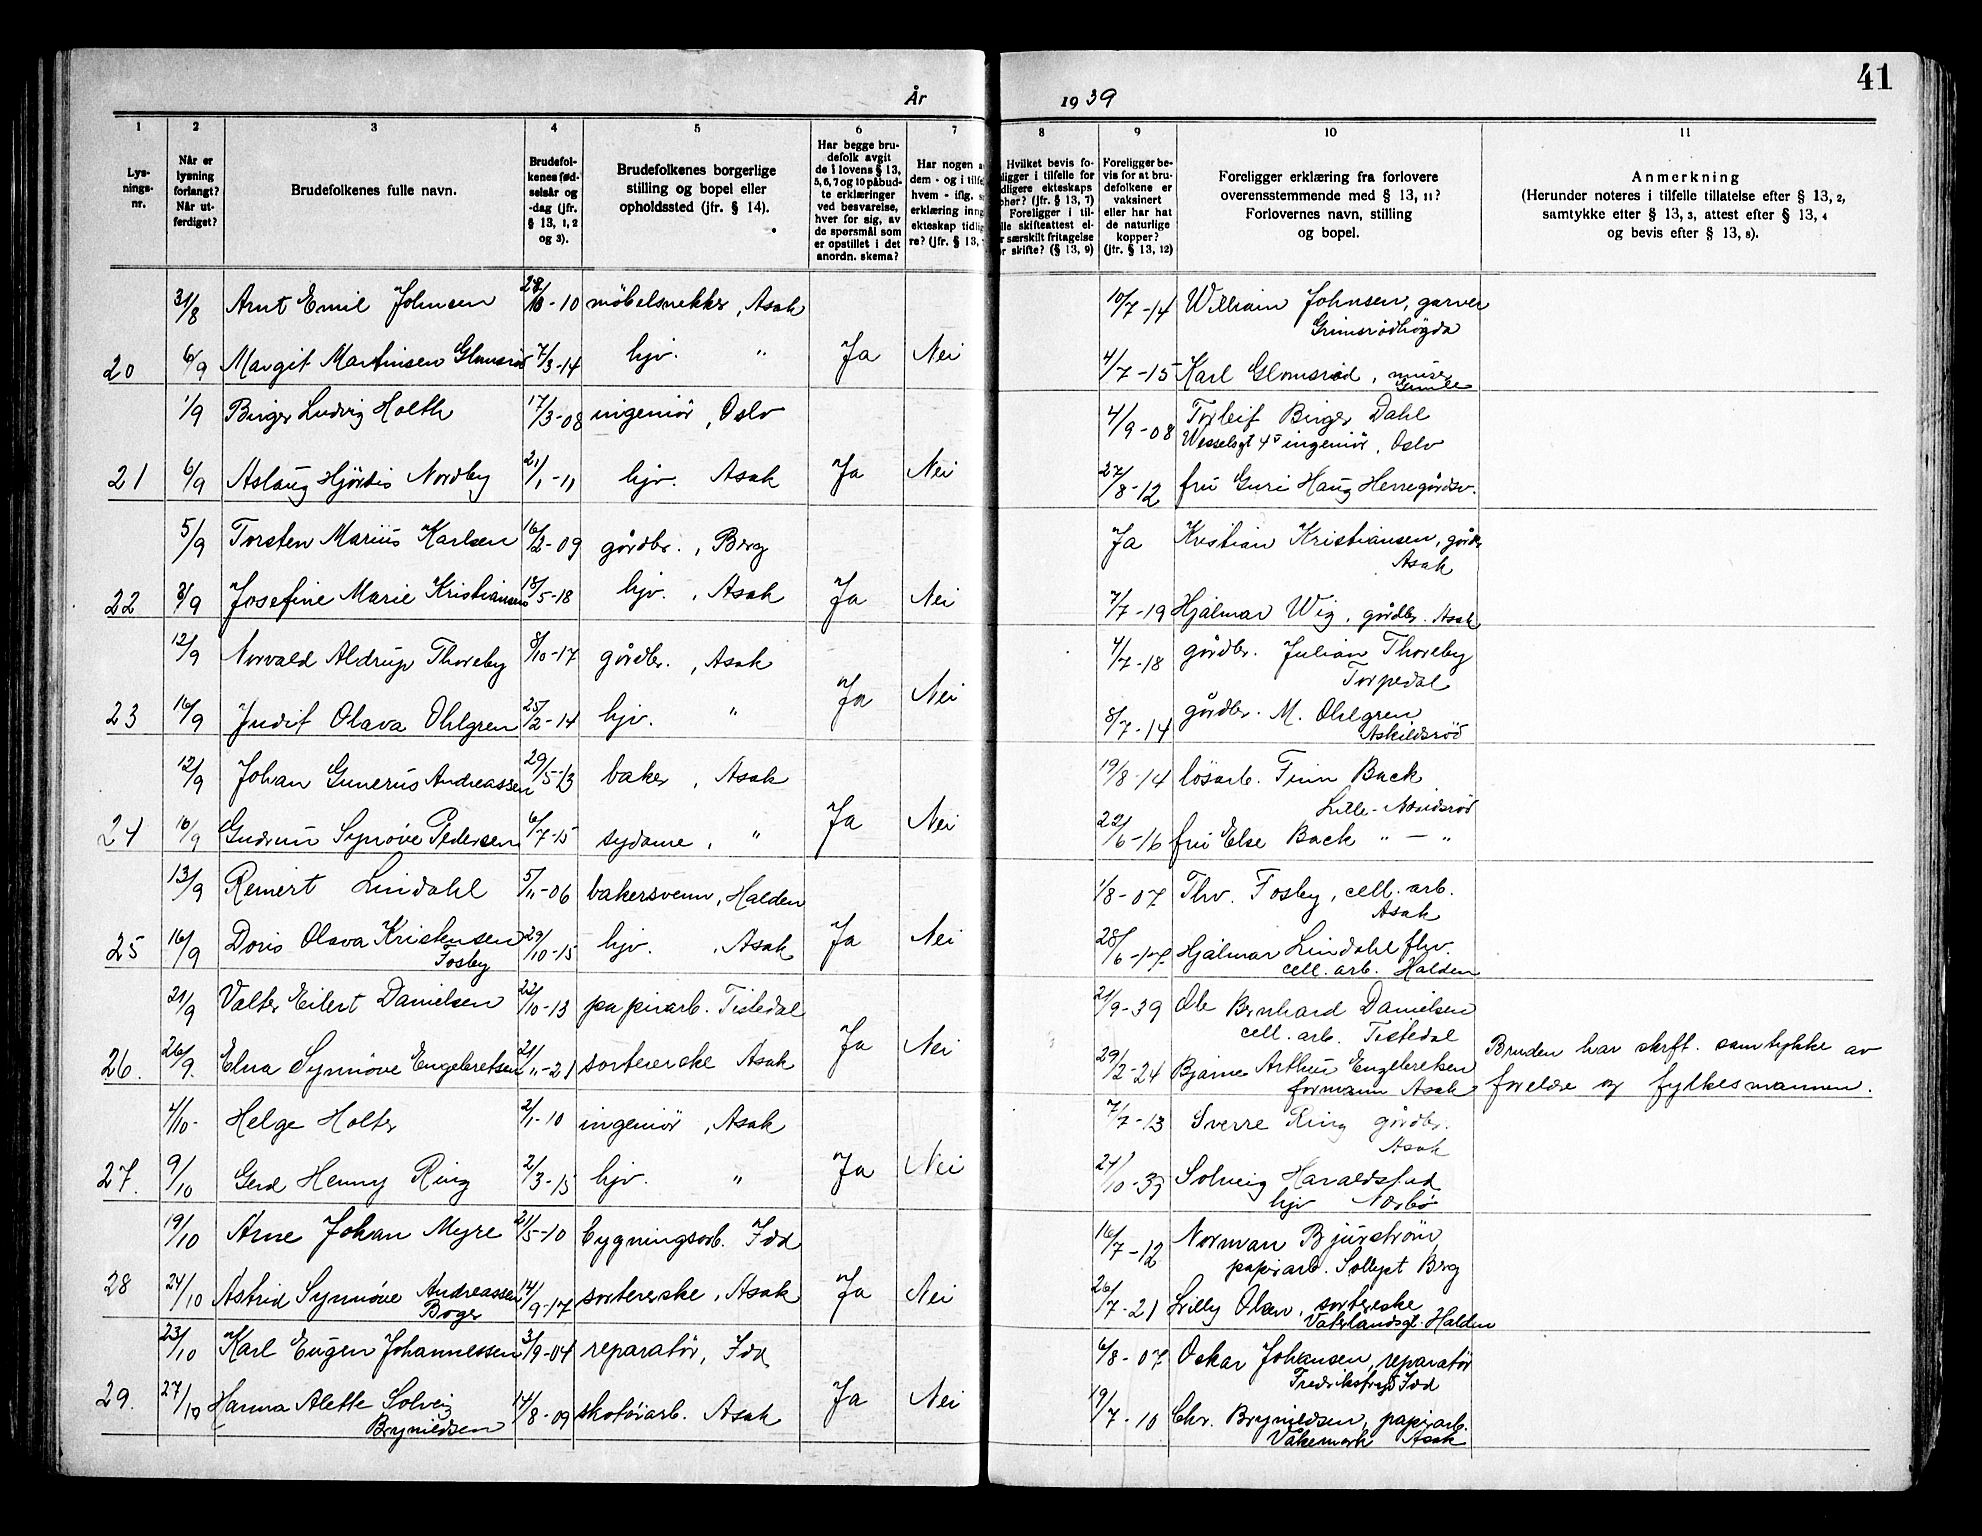 41
År 1939
1 2 3 4 5 6 7 8 9 10 11
Lysningsnr.
Når er lysning forlangt? Når utferdiget?
Brudefolkenes fulle navn.
Brudefolkenes fødselsår og -dag (jfr. § 13, 1, 2 og 3).
Brudefolkenes borgerlige stilling og bopel eller opholdssted (jfr. § 14).
Har begge brudefolk avgit de i lovens § 13, 5, 6, 7 og 10 påbudte erklæringer ved besvarelse, hver for sig, av de spørsmål som er opstillet i det anordn. skema?
Har nogen a
dem - og i tilfel
hvem - iflg. s
erklæring inng
ekteskap tidlig
re? (Jfr. § 13,
Hvilket bevis fo-
ligger i tilfelle for
dligere ekteskaps
pher? (jfr. § 13, 7)
Foreligger i til-
lle skifteattest el-
r særskilt fritagelse
r skifte? (§ 13, 9)
Foreligger bevis for at brudefolkene er vaksinert eller har hat de naturlige kopper? (jfr. § 13, 12)
Foreligger erklæring fra forlovere overensstemmende med § 13, 11? Forlovernes navn, stilling og bopel.
Anmerkning
(Herunder noteres i tilfelle tillatelse efter § 13, 2, samtykke efter § 13, 3, attest efter § 13, 4 og bevis efter § 13, 8).
31/8 Arnt Emil Johnsen 28/10-10 møbelsnekker, Asak 10/7-14 William Johnsen, garver
Grimsrødhøgda
20 6/9 Margit Martinsen Glomsrød 7/3-14 hjv. " Ja Nei 4/7-15 Karl Glomsrød, murer
Gimle
1/9 Birger Ludvig Holth 17/3-08 ingeniør, Oslo 4/9-08 Torleif Birger Dahl
Wesselsgt 4 ingeniør, Oslo
21 6/9 Aslaug Hjørdis Nordby 21/1-11 hjv. Asak Ja Nei 27/8-12 fru Guri Haug Herregårdsv.
5/9 Torsten Marius Karlsen 16/2-09 gårdbr., Berg Ja Kristian Kristiansen, gårdbr
Asak
22 8/9 Josefine Marie Kristiansen 18/5-18 hjv., Asak Ja Nei 7/7-19 Hjalmar Wig, gårdbr. Asak
12/9 Norvald Aldrup Thoreby 8/10-17 gårdbr., Asak 4/7-18 gårdbr. Julian Thoreby
Torpedal
23 16/9 Judit Olava Ohlgren 25/2-14 hjv. " Ja Nei 8/7-14 gårdbr. M. Ohlgren
Askildsrød
12/9 Johan Gunerius Andreassen 29/5-13 baker, Asak 19/8-14 løsarb. Finn Back
Lille-
24 16/9 Gudrun Synøve Pedersen 6/7-15 sydame, " Ja Nei 22/6-16 fru Else Back " — "
13/9 Reinert Lindahl 5/11-06 bakersvenn, Halden 1/8-07 Thv. Fosby, cell. arb.
Asak
25 16/9 Doris Olava Kristensen 29/10-15 hjv., Asak Ja Nei 28/6-17 Hjalmar Lindahl flyv.
Fosby cell. arb. Halden
21/9 Valter Eilert Danielsen 22/10-13 papirarb. Tistedal 21/9-39 Ole Bernhard Danielsen
cell. arb. Tistedal
26. 26/9. Elna Synnøve Engebretsen 21/11-21 sortererske Asak Ja Nei 29/2-24 Bjarne Arthur Engebretsen Bruden har skrft. samtykke av
formann Asak foreldre og fylkesmannen.
4/10- Helge Holter 2/1-10 ingeniør, Asak 7/7-13 Sverre Ring gårdbr.
Asak
27. 9/10 Gerd Henny Ring 2/3-15 hjv. " Ja Nei 21/10-39 Solveig Haraldstad
hjv
19/10 Arne Johan Myre 21/5-10 bygningsarb. Idd 16/7-12 Norman Bjurstrøm
papirarb. Berg
28 24/10 Astrid Synnøve Andreassen 14/9-17 sortererske, Asak Ja Nei 26/7-21 Lilly Olsen, sortererske
Boger Vaterlandsgt. Halden
23/10 Karl Eugen Johannessen 3/9-04 reparatør, Idd 6/8-07 Oskar Johansen, reparatør
Idd
29. 27/10 Hanna Alette Solveig 14/8-09 skotøiarb. Asak Ja Nei 19/7-10 Chr. Brynildsen, papirarb.
Brynildsen Asak